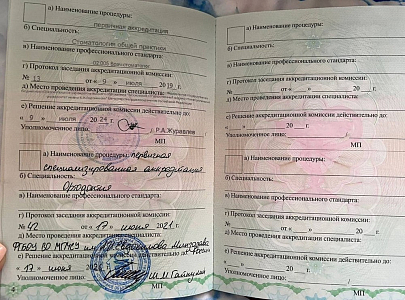 а) Наименование процедуры:
первичная аккредитация
б) Специальность:
Стоматология общей практики
в) Наименование профессионального стандарта:
02.005 Врач-стоматолог
г) Протокол заседания аккредитационной комиссии:
№ 13 от « 9 » июля 2019 г.
д) Место проведения аккредитации специалиста:
е) Решение аккредитационной комиссии действительно до:
« 9 » июля 2024 г.
Уполномоченное лицо: / Р.А.Журавлев
МП
а) Наименование процедуры: первичная
специализированная аккредитация
б) Специальность:
Ортодонтия
в) Наименование профессионального стандарта:
г) Протокол заседания аккредитационной комиссии:
№ 42 от « 17 » июня 2021 г.
д) Место проведения аккредитации специалиста:
ФГБОУ ВО МГМСУ им. Минздрава
е) Решение аккредитационной комиссии действительно до: России
« 17 » июня 2026 г.
Уполномоченное лицо:
МП
4
а) Наименование процедуры:
б) Специальность:
в) Наименование профессионального стандарта:
г) Протокол заседания аккредитационной комиссии:
№ от « » 20 г.
д) Место проведения аккредитации специалиста:
е) Решение аккредитационной комиссии действительно до:
« » 20 г.
Уполномоченное лицо:
МП
а) Наименование процедуры:
б) Специальность:
в) Наименование профессионального стандарта:
г) Протокол заседания аккредитационной комиссии:
№ от « » 20 г.
д) Место проведения аккредитации специалиста:
е) Решение аккредитационной комиссии действительно до:
« » 20 г.
Уполномоченное лицо:
МП